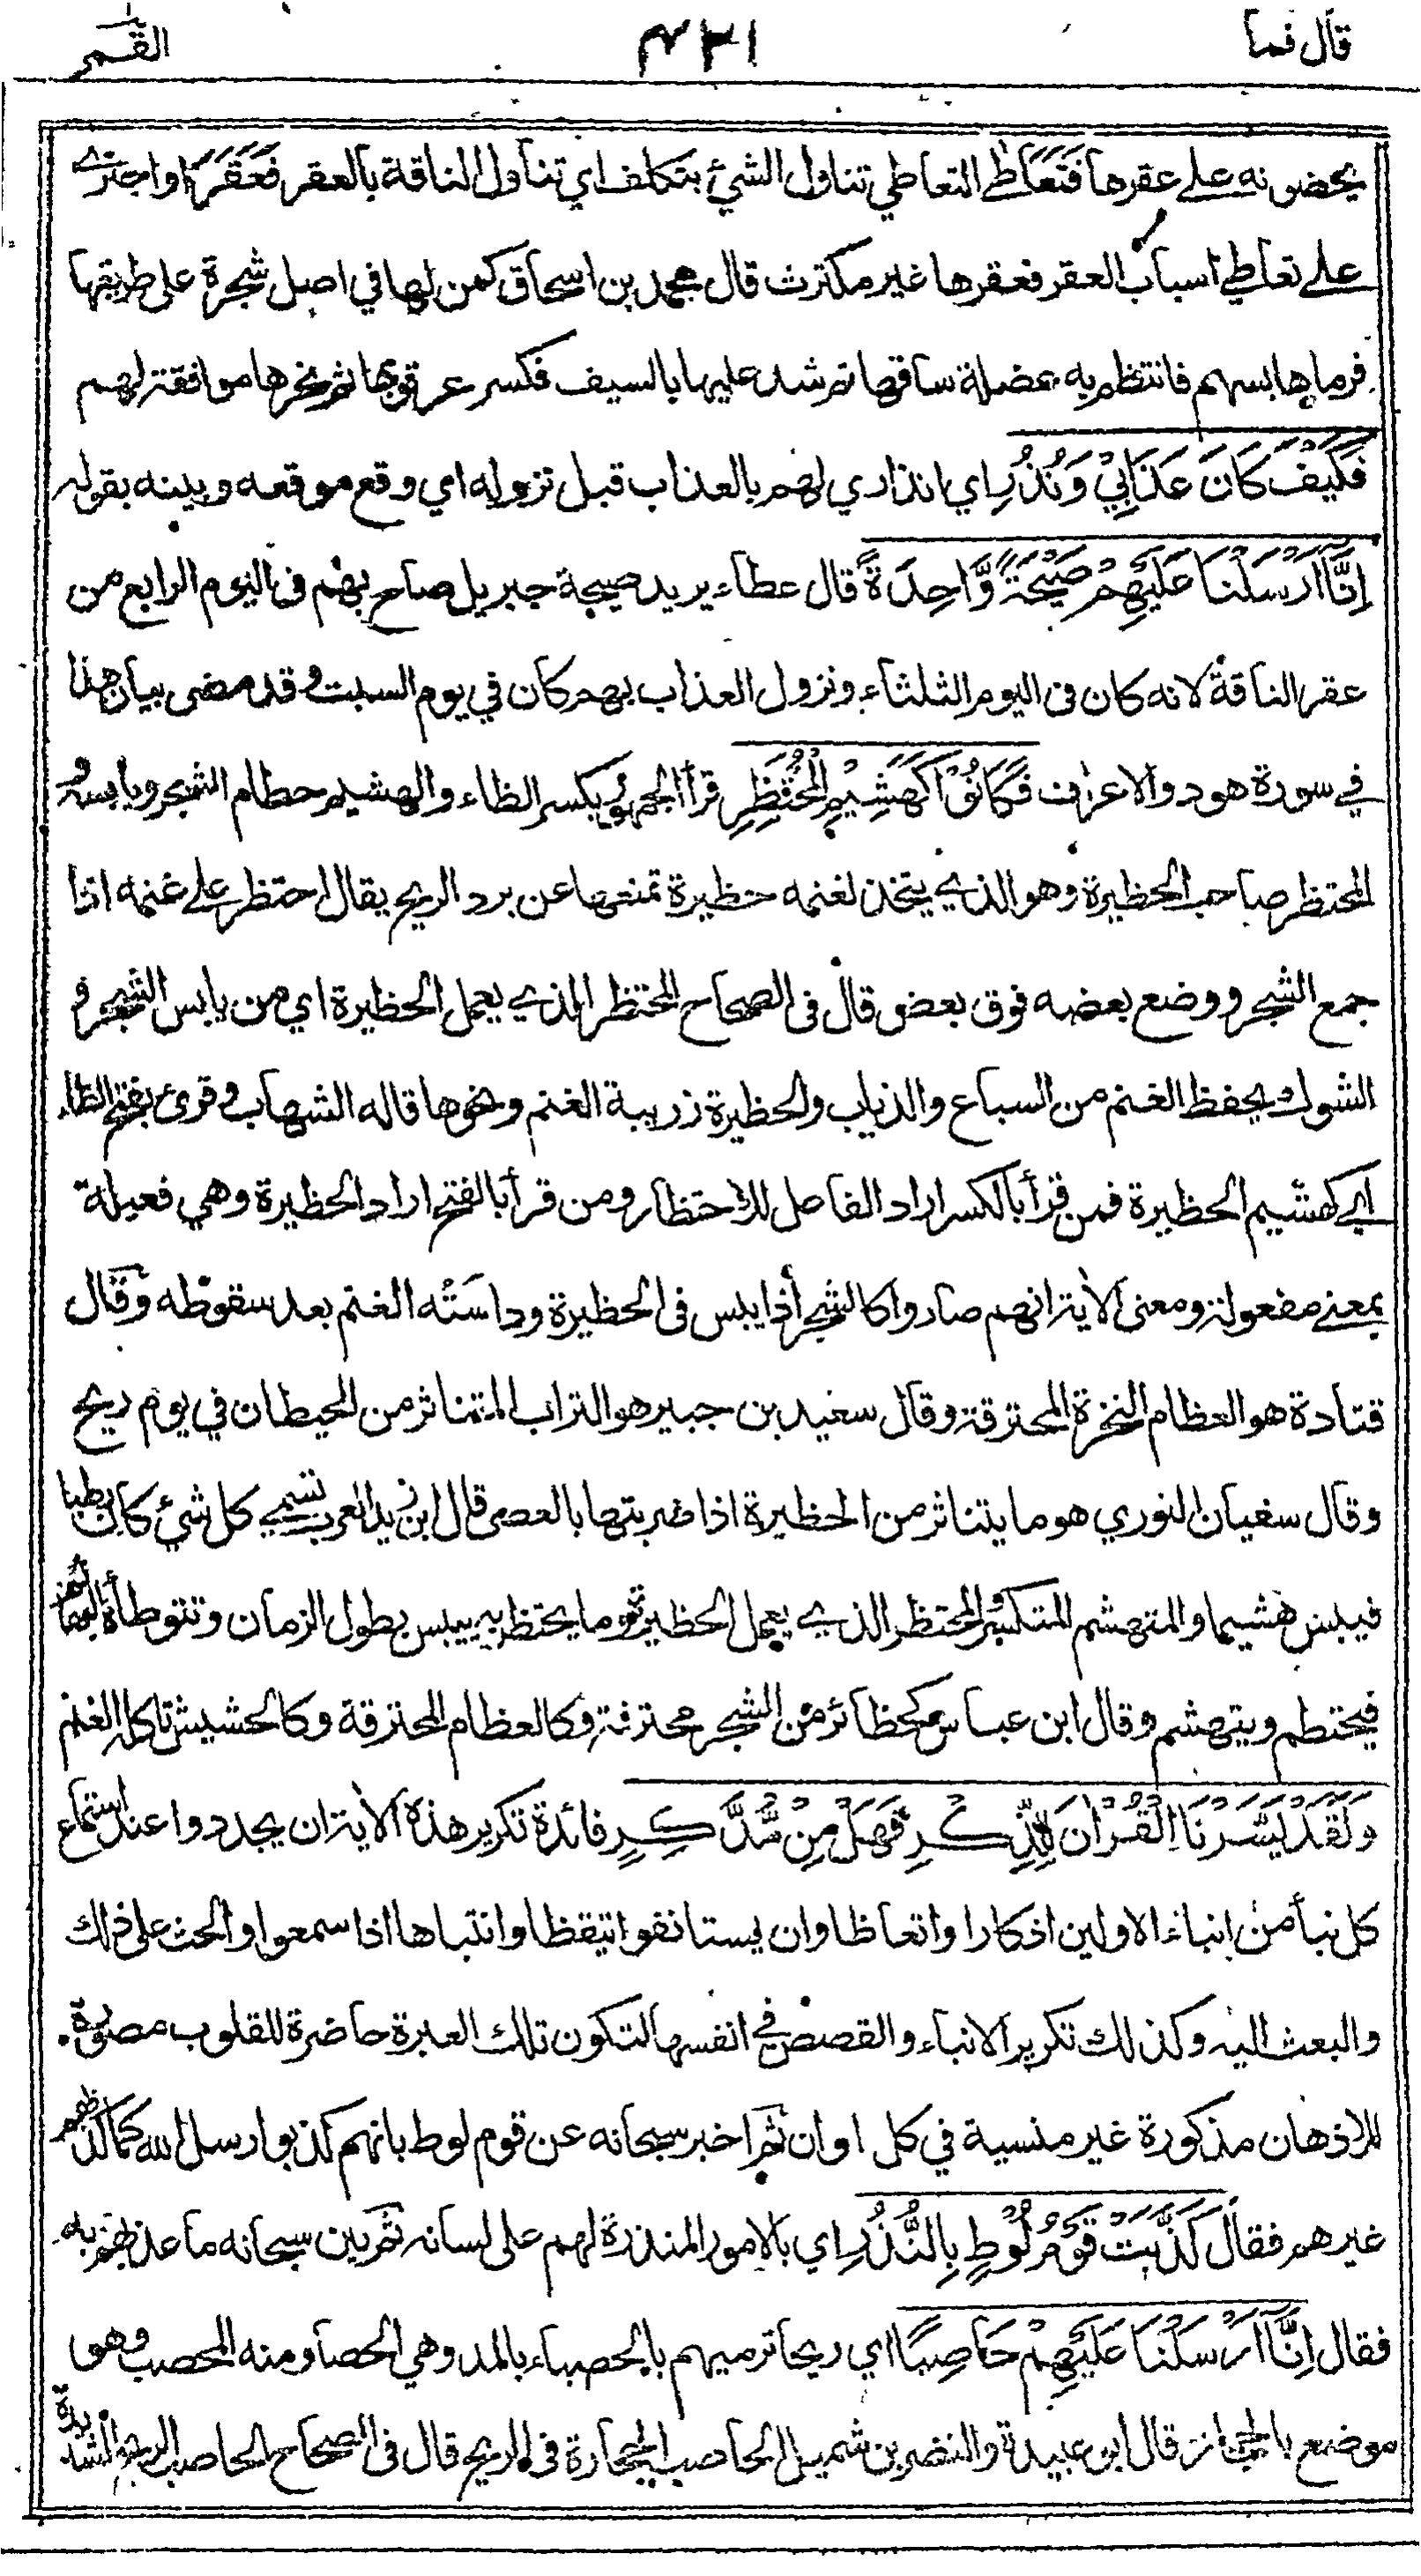 قال فما ٤٢١ القمر
يحضونه على عقرها فَتَعَاطٰى التعاطي تناول الشيء بتكلف اي تناول الناقة بالعقر فَعَقَرَ او اجترى
على تعاطي اسباب العقر فعقرها غير مكترث قال محمد بن اسحاق كمن لها في اصل شجرة على طريقها
فرماها بسهم فانتظم به عضلة ساقها ثم شد عليها بالسيف فكسر عرقوبها ثم نحرها موافقة لهم
فَكَيْفَ كَانَ عَذَابِيْ وَنُذُرِ اي انذاري لهم بالعذاب قبل نزوله اي وقع موقعه وبينه بقوله
اِنَّا اَرْسَلْنَا عَلَيْهِمْ صَيْحَةً وَّاحِدَةً قال عطاء يريد صيحة جبريل صاح بهم في اليوم الرابع من
عقر الناقة لانه كان في اليوم الثلثاء ونزول العذاب بهم كان في يوم السبت وقد مضى بيان هذا
في سورة هود والاعراف فَكَانُوْا كَهَشِيْمِ الْمُحْتَظِرِ قرأ الجمهور بكسر الظاء والهشيم حطام الشجر ويابسه و
المحتظر صاحب الحظيرة وهو الذي يتخذ لغنمه حظيرة تمنعها عن برد الريح يقال احتظر على غنمه اذا
جمع الشجر ووضع بعضه فوق بعض قال في الصحاح المحتظر الذي يعمل الحظيرة اي من يابس الشجر و
الشوك ويحفظ الغنم من السباع والذياب والحظيرة زريبة الغنم ونحوها قاله الشهاب وقرئ بفتح الظاء
اي كهشيم الحظيرة فمن قرأ بالكسر اراد الفاعل للاحتظار ومن قرأ بالفتح اراد الحظيرة وهي فعيلة
بمعنى مفعولة ومعنى الاية انهم صاروا كالشجر أذا يبس في الحظيرة وداسَتْه الغنم بعد سقوطه وقال
قتادة هو العظام النخرة المحترقة وقال سعيد بن جبير هو التراب المتناثر من الحيطان في يوم ريح
وقال سفيان الثوري هو ما يتناثر من الحظيرة اذا ضربتها بالعصى قال ابن زيد العرب تسمي كل شيء كان رطبا
فيبس هشيما والمتهشم المتكسر والمحتظر الذي يعمل الحظيرة وما يحتظر به ييبس بطول الزمان وتتوطأه البهائم
فيحتطم ويتهشم وقال ابن عباس كحظائر من الشجر محترقة وكالعظام المحترقة وكالحشيش تاكله الغنم
وَلَقَدْ يَسَّرْنَا الْقُرْاٰنَ لِلذِّكْرِ فَهَلْ مِنْ مُّدَّكِرٍ فائدة تكرير هذه الاية ان يجددوا عند استماع
كل نبأ من انباء الاولين اذكارا واتعاظا وان يستانفوا تيقظا وانتباها اذا سمعوا والحث على ذلك
والبعث اليه وكذلك تكرير الانباء والقصص في انفسها لتكون تلك العبرة حاضرة للقلوب مصورة
للاذهان مذكورة غير منسية في كل اوان ثم اخبر سبحانه عن قوم لوط بانهم كذبوا رسل الله كما كذبهم
غيرهم فقال كَذَّبَتْ قَوْمُ لُوْطٍ بِالنُّذُرِ اي بالامور المنذرة لهم على لسانه ثم بين سبحانه ما عذبهم به
فقال اِنَّآ اَرْسَلْنَا عَلَيْهِمْ حَاصِبًا اي ريحا ترميهم بالحصباء بالمد وهي الحصا ومنه المحصب وهو
موضع بالحجاز قال ابن عبيدة والنضر بن شميل الحاصب الحجارة في الريح قال في الصحاح الحاصب الريح الشديدة